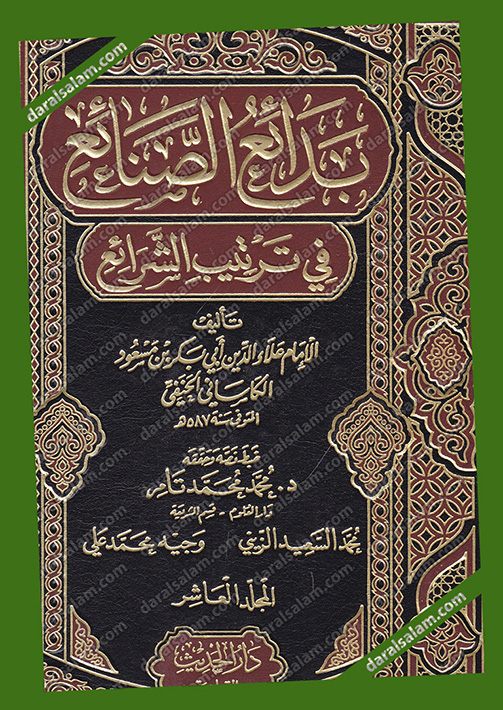 بَدَائِعُ الصَّنَائِعِ
فِي تَرْتِيبِ الشَّرَائِعِ
تأليف
الإمام علاء الدين أبي بكر بن مسعود
الكاساني الحنفي
المتوفى سنة ٥٨٧ هـ
ضبط نصه وحققه
د. محمد محمد تامر
دار العلوم - قسم الشريعة
محمد السعيد الزيني
وجيه محمد علي
المجلد العاشر
دار الحديث
القاهرة
daralsalam.com
daralsalam.com